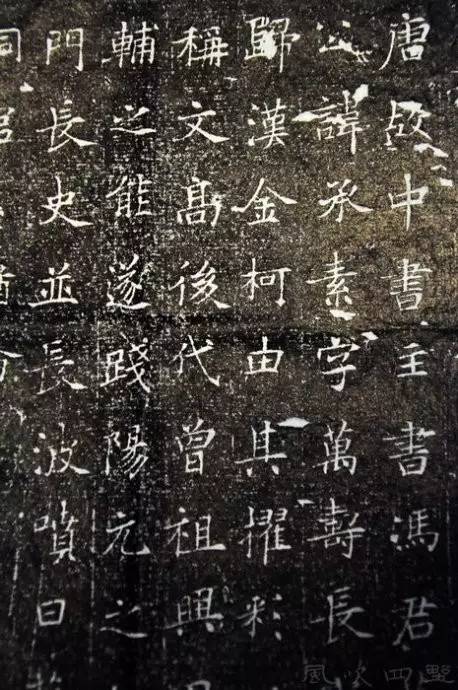 唐故中書主書馮君
公諱承素字萬壽長
歸漢金柯由其擢彩
稱文髙後代曾祖興
輔之能遂踐陽元之
門長史並長波噴日